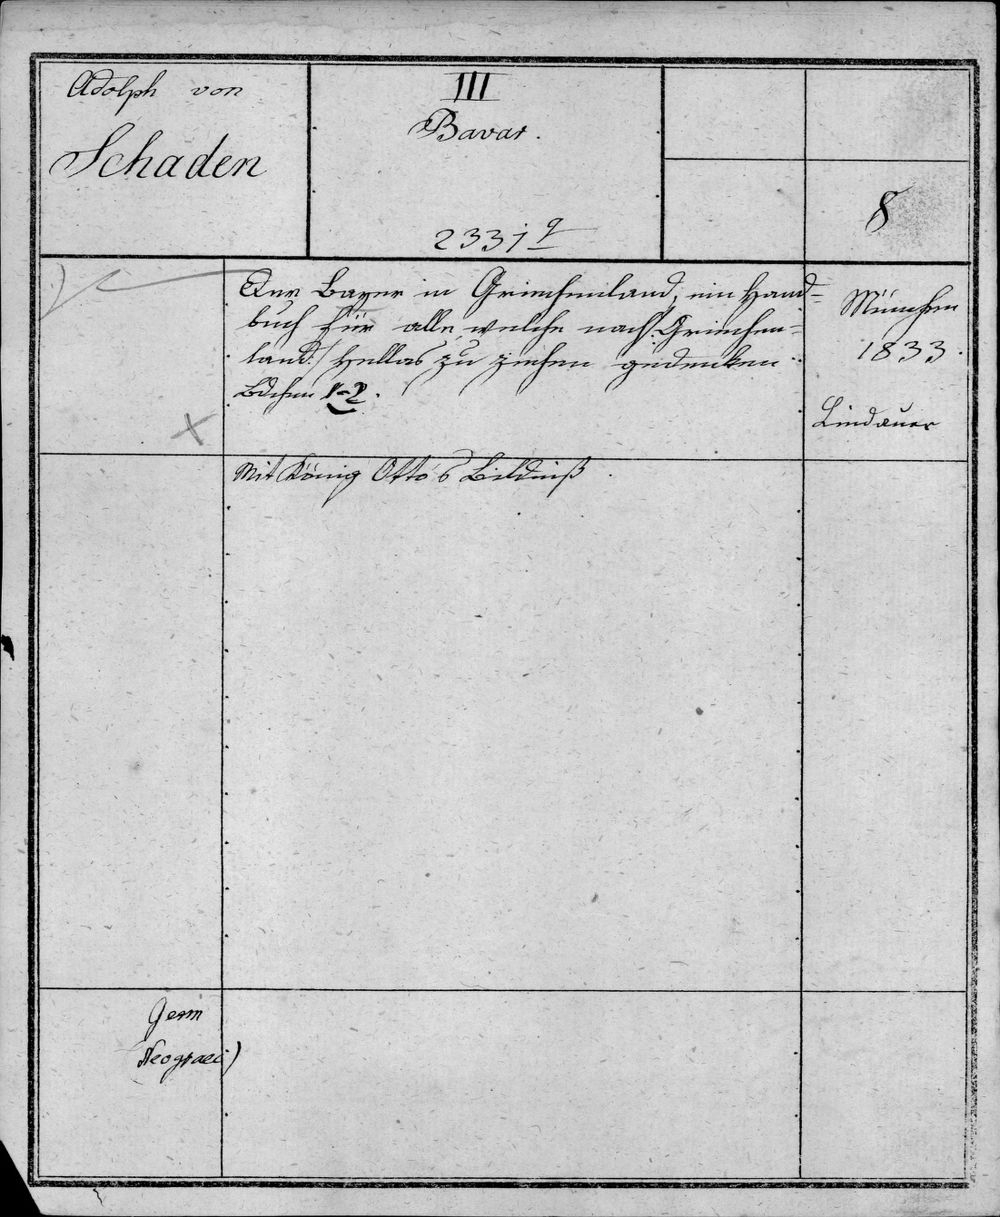 Adolph von
Schaden
III
Bavar.
2331 q
8
Der Bayer in Griechenland, ein Hand-
buch für alle, welche nach Griechen-
land / Hellas zu ziehen gedenken
Bdchen 1-2.
München
1833.
Lindauer
Mit König Otto's Bildniß
Germ
Neograec)